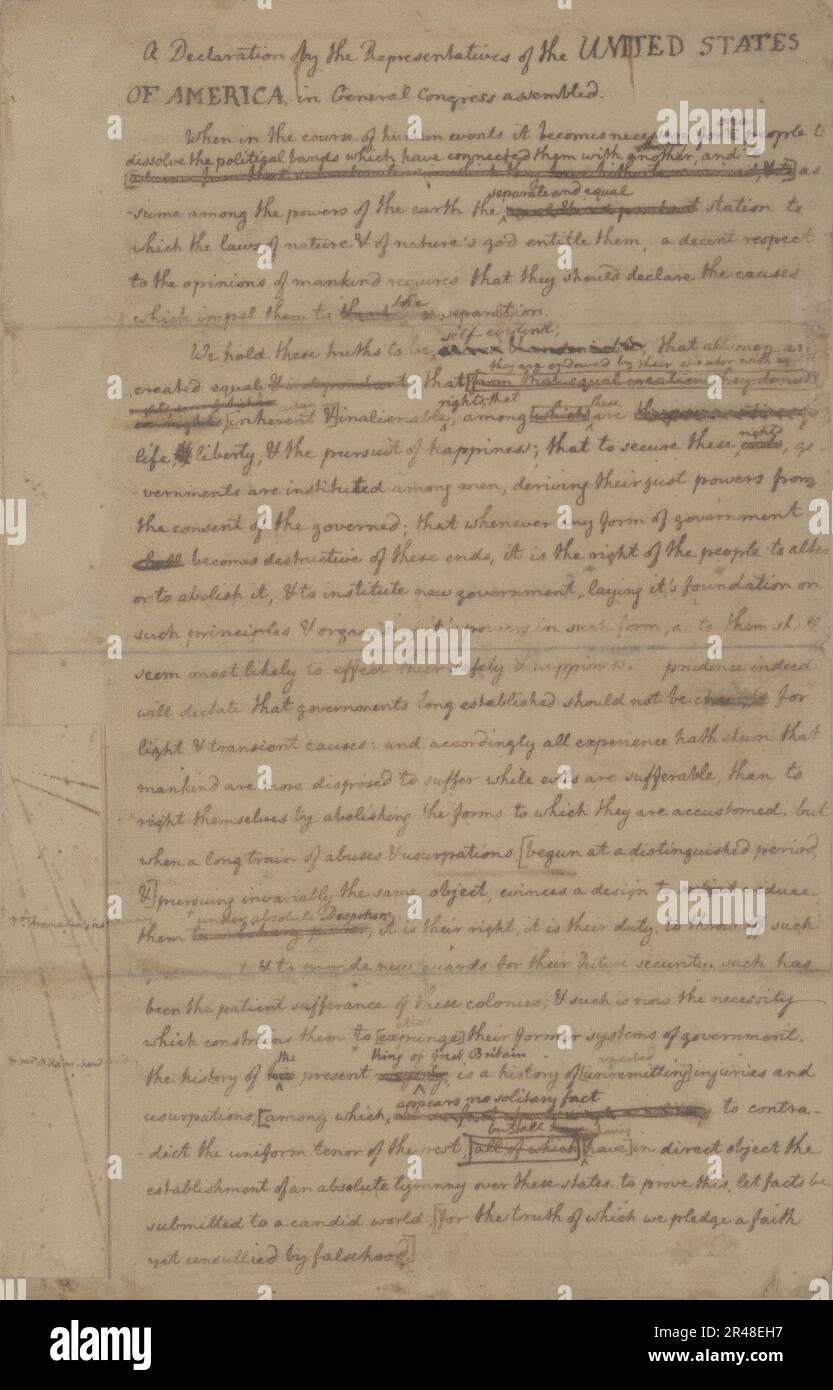 A Declaration by the Representatives of the UNITED STATES
OF AMERICA, in General Congress assembled.
When in the course of human events it becomes necessary for one people to
dissolve the political bands which have connected them with another, and to
as
separate and equal
-sume among the powers of the earth the station to
which the laws of nature & of nature's god entitle them, a decent respect
to the opinions of mankind requires that they should declare the causes
which impel them to the separation.
self evident;
We hold these truths to be, that all men are
they are endowed by their creator with
created equal & independant; that [from that equal creation they derive
rights; that these
[inherent &] inalienable, among [which] are
life, & liberty, & the pursuit of happiness; that to secure these rights, go
-vernments are instituted among men, deriving their just powers from
the consent of the governed; that whenever any form of government
shall becomes destructive of these ends, it is the right of the people to alter
or to abolish it, & to institute new government, laying it's foundation on
such principles & organising it's powers in such form, as to them shall
seem most likely to effect their safety & happiness. prudence indeed
will dictate that governments long established should not be changed for
light & transient causes: and accordingly all experience hath shewn that
mankind are more disposed to suffer while evils are sufferable, than to
right themselves by abolishing the forms to which they are accustomed. but
when a long train of abuses & usurpations [begun at a distinguished period,
&] pursuing invariably the same object, evinces a design to reduce
under absolute Despotism
them, it is their right, it is their duty, to throw off such
& to provide new guards for their future security. such has
been the patient sufferance of these colonies; & such is now the necessity
alter
which constrains them to [expunge] their former systems of government.
the King of Great Britain repeated
the history of his present, is a history of [unremitting] injuries and
appears no solitary fact
usurpations, [among which, to contra-
but all having
-dict the uniform tenor of the rest, [all of which] [have] in direct object the
establishment of an absolute tyranny over these states. to prove this, let facts be
submitted to a candid world, [for the truth of which we pledge a faith
yet unsullied by falsehood.]
alamy
Image ID: 2R48EH7
www.alamy.com